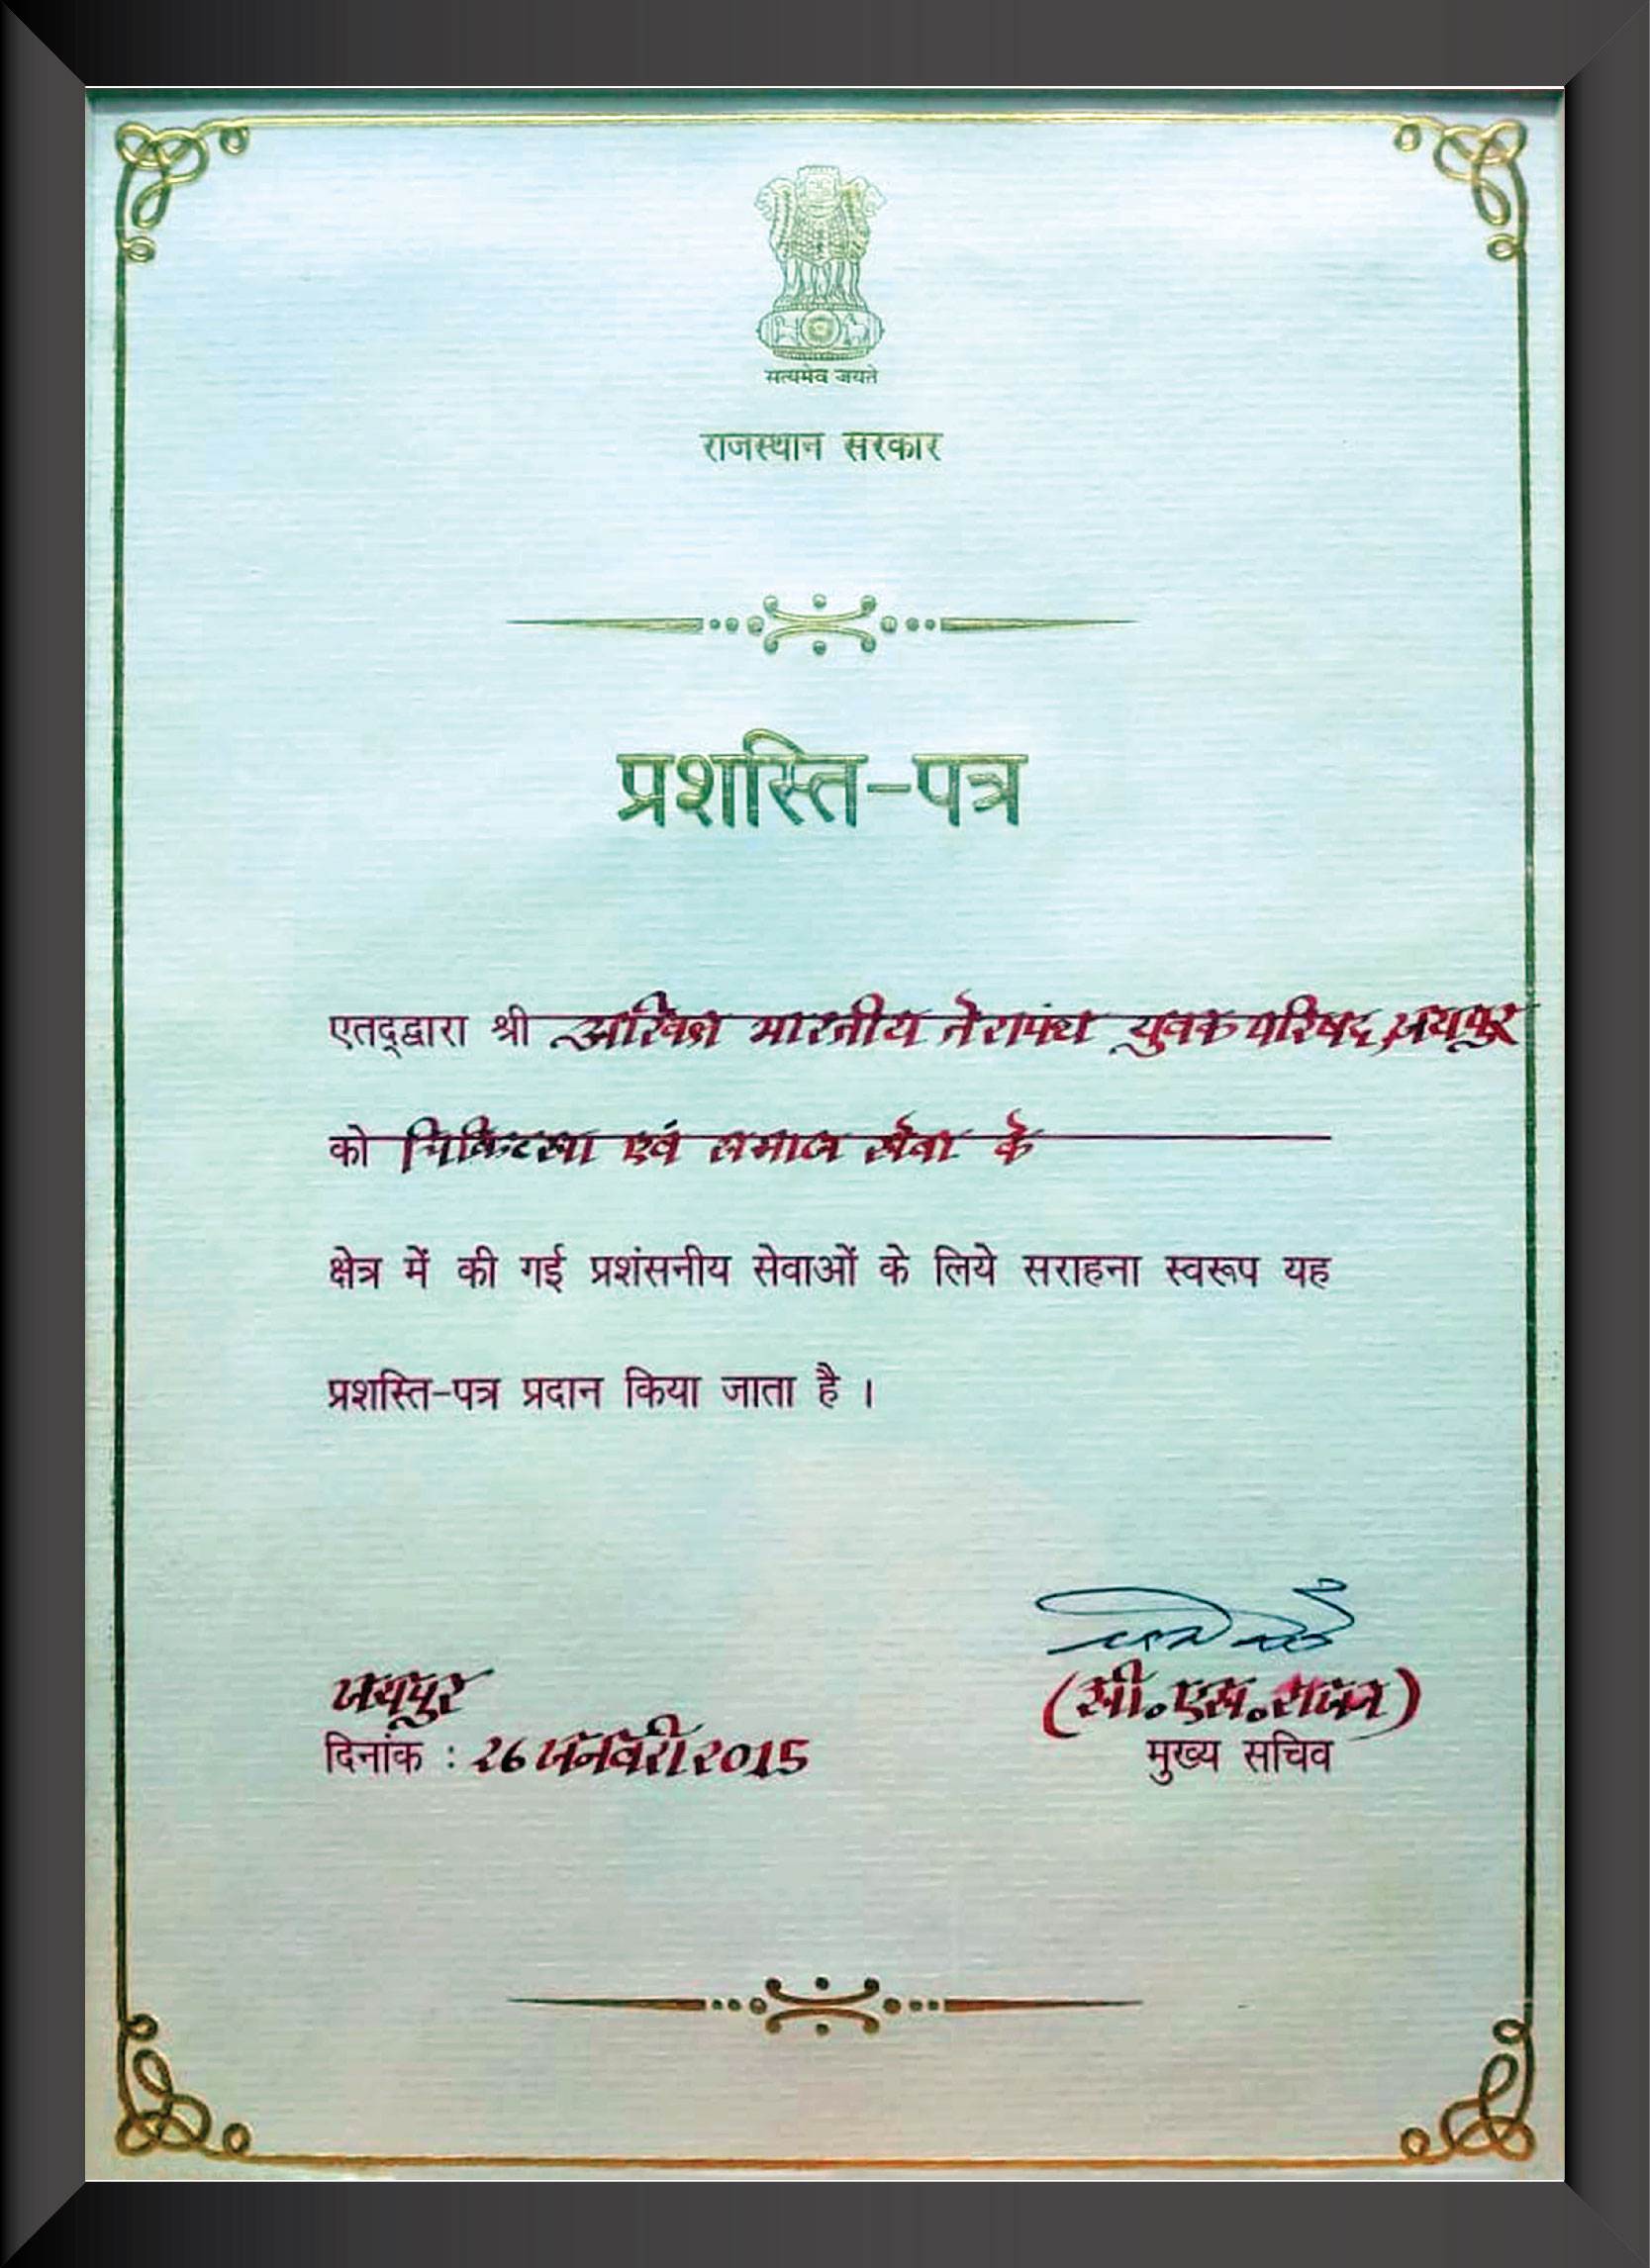 सत्यमेव जयते
राजस्थान सरकार
प्रशस्ति-पत्र
एतद्द्वारा श्री अखिल भारतीय तेरापंथ युवक परिषद, जयपुर
को चिकित्सा एवं समाज सेवा के
क्षेत्र में की गई प्रशंसनीय सेवाओं के लिये सराहना स्वरूप यह
प्रशस्ति-पत्र प्रदान किया जाता है ।
जयपुर
दिनांक : 26 जनवरी 2015
(सी.एस.राजन)
मुख्य सचिव